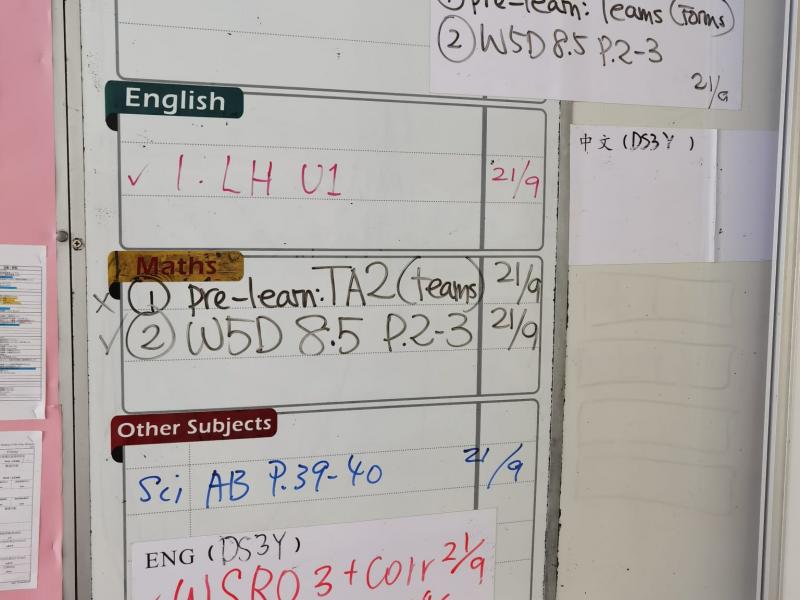 ① pre-learn: Teams (Forms)
② W5D 8.5 P.2-3
21/9
English
✓ 1. LH U1 21/9
中文 (DS3Y)
Maths
× ① pre-learn: TA2 (teams) 21/9
✓ ② W5D 8.5 P.2-3 21/9
Other Subjects
Sci AB P.39-40 21/9
ENG (DS3Y)
WSRO 3 + Corr 21/9